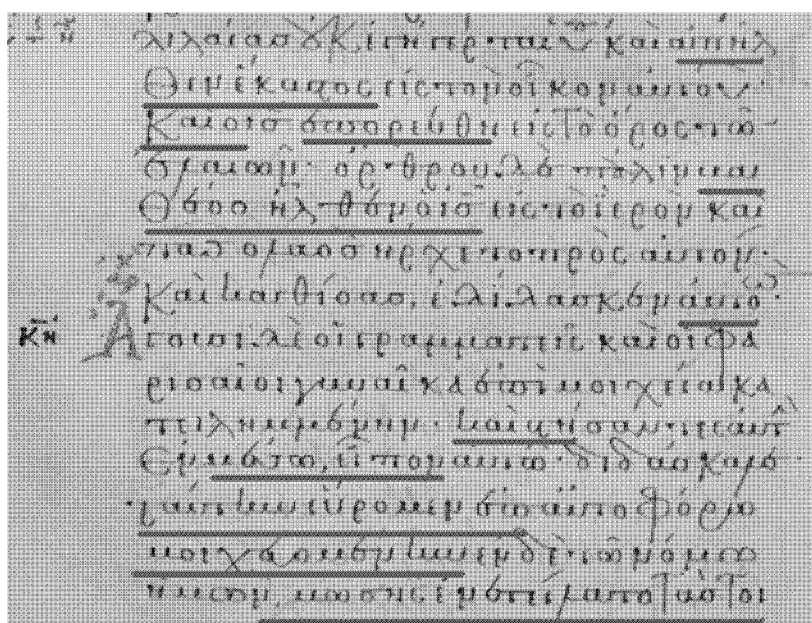 λιλαίασ οὐκ ἐγήγερται καὶ ἀπῆλ
θεν ἕκαστος εἰς τὸν οἶκον αὐτοῦ
Καὶ ὁ ισ ἐπορεύθη εἰς τὸ ὄρος τῶν
ἐλαιῶν· ὄρθρου δὲ πάλιν
ἦλθεν ὁ ισ εἰς τὸ ἱερὸν καὶ
πᾶσ ὁ λαὸσ ἤρχετο πρὸς αὐτόν·
Καὶ καθίσασ, ἐδίδασκεν
κη Ἄγουσι δὲ οἱ γραμματεῖς καὶ οἱ φα
ρισαῖοι γυναῖκα ἐπὶ μοιχεία κα
τειλημμένην· καὶ στήσαντες αὐτ
ἐν μέσω, εἶπον αὐτῶ· διδάσκαλε
ταύτην εὕρομεν ἐπ αὐτοφόρω
ἐν δὲ τῶ νόμω
ἡμῶν, μωσῆς ἐνετείλατο τὰς τοι